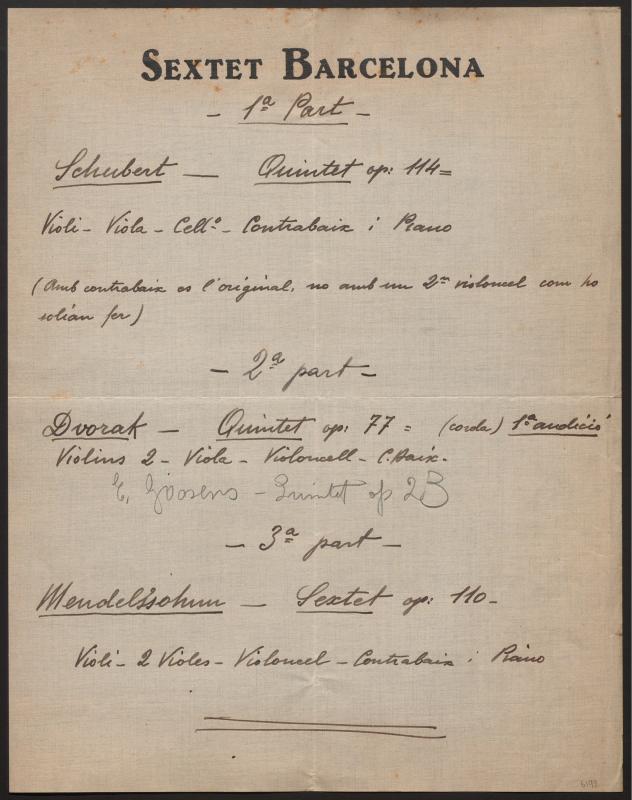 SEXTET BARCELONA
- 1ª Part -
Schubert — Quintet op: 114 =
Violi - Viola - Cell.º - Contrabaix i Piano
(Amb contrabaix es l'original, no amb un 2on violoncel com ho
solian fer)
- 2ª part -
Dvorak — Quintet op: 77 = (corda) 1ª audició
Violins 2 - Viola - Violoncell - C. Baix.
E. Goosens - Quintet op 23
- 3ª part -
Mendelssohnn — Sextet op: 110 -
Violi - 2 Violes - Violoncel - Contrabaix i Piano